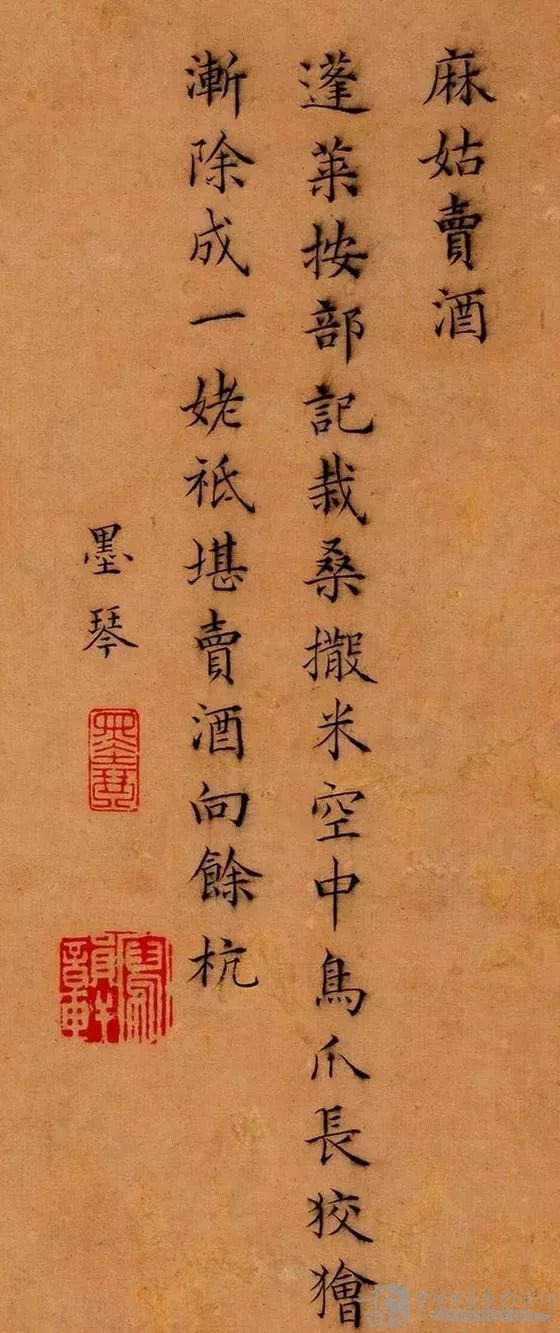 麻姑賣酒
蓬萊按部記栽桑撒米空中鳥爪長狡獪
漸除成一姥祇堪賣酒向餘杭
墨琴
墨琴